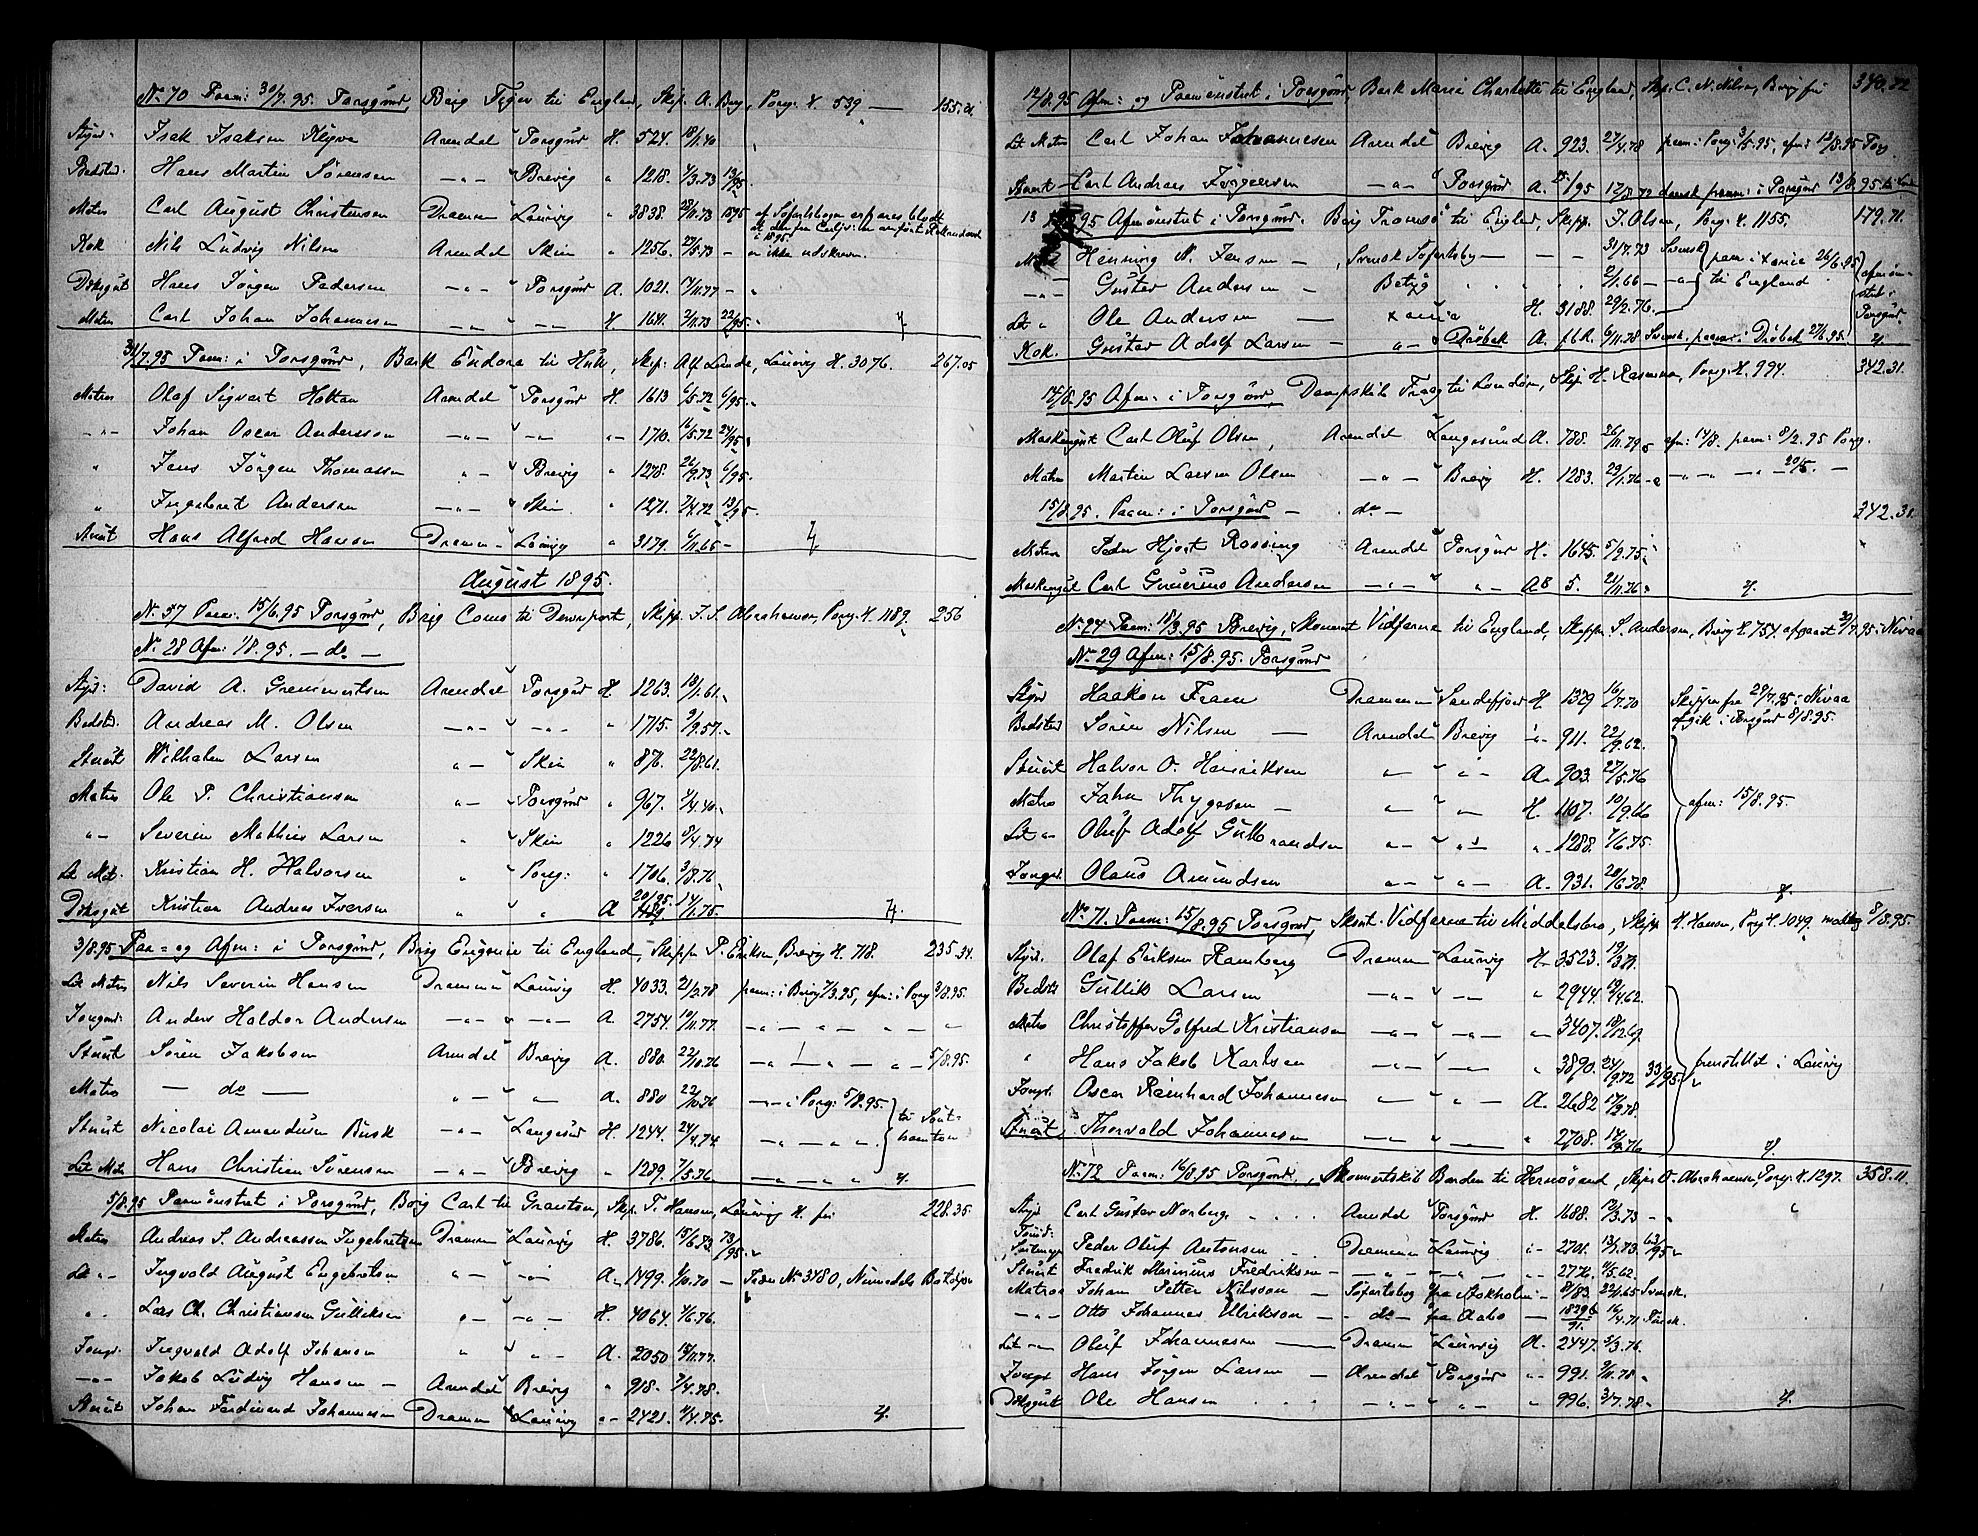 No 70 Paam: 30/7.95 Porsgrund, Brig Tiger til England, Skip. A. Berg, Porsg. H. 539 — 155.
Styrm: Isak Isaksen Klyve Arendal " Porsgrund H. 524. 18/11.40
Bedstm. Hans Martin Sörensen — „ — " Brevig „ 1218. 7/3.73 13/95.
Matros Carl August Christensen Drammen " Laurvig „ 3838. 28/11.73 af Söfartsbogen erfares
Kok Nils Ludvig Nilsen Arendal Skien „ 1256. 27/5.73 — er ikke udskreven.
Dæksgut Hans Jörgen Pedersen — „ — " Porsgrund A. 1021. 17/11.77 —
Matros Carl Johan Johannesen — „ — " — „ — H 1641. 2/11.73 22/95. „
31/7.95 Paam: i Porsgrund, Bark Eudora til Hull, Skip: Alf Lunde, Laurvig H. 3076. 267.05
Matros Olaf Sigvart Holtan Arendal " Porsgrund H. 1613 6/5.72 6/95. „
— „ — Johan Oscar Anderssen — „ — " — „ — „ — 1710. 16/5.72 24/95 „
„ Jens Jörgen Thomassen „ — " Brevig „ 1278. 26/9.73 6/95.
„ Ingebret Andersen — „ — " Skien. „ 1271. 7/4.72 13/95 —
Stuert Hans Alfred Hansen Drammen — " Laurvig „ 3179. 4/11.65 —
August 1895.
No 57 Paam: 15/6.95 Porsgrund, Brig Coms til Devenport, Skipp. J. S. Abrahamsen, Porsg. H. 1189. 256
No 28 Afm: 1/8.95. — do —
Styrm: David A. Gremmertsen Arendal " Porsgrund H. 1263. 18/1.61.
Bedstm. Andreas M. Olsen — „ — " — „ — „ 1715. 9/9.57.
Stuert Wilhalm Larsen „ — " Skien „ 876. 22/8.61.
Matros Ole P. Christiansen „ — " Porsgrund „ 967. 4/4.40.
— „ — Severin Mathias Larsen „ " Skien „ 1226 9/4.74
Let Mat. Kristian H. Halvorsen „ " Porsg: „ 1706. 3/8.76
Dæksgut Kristian Andreas Iversen „ " „ A 20/95. 14/1.78.
3/8.95 Paa = og Afm: i Porsgrund, Brig Eugenie til England, Skipp. P. Eriksen, Brevig H. 718. 235.34.
Let Matros Nils Severin Hansen Drammen " Laurvig H. 4033. 21/3.78 paam: i Brevig 7/3.95, afm: i Porsg 3/8.95.
Jungm: Anders Haldor Andersen — „ — " — „ — A. 2754. 10/11.77. — „ — „ — „ — „
Stuert Sören Jakobsen Arendal " Brevig A. 880. 22/10.76 — „ — „ — „ — 5/8.95.
Matros — do — „ — " „ — A. 880 22/10.76 — „ — i Porsg: 5/8.95. til Sout-
Stuert Nicolai Amandusen Busk — „ — " Langesund H. 1244. 24/4.74 — „ — „ — „ hamton
Let Mat. Hans Christian Sörensen — „ — " Brevig „ 1289. 7/5.76 — „ — „ „
5/8.95 Paamönstret i Porsgrund, Brig Carl til Granton, Skip. T. Hansen, Laurvig H. fri 228.35.
Matros Andreas S. Andreassen Ingebretsen Drammen " Laurvig H. 3786. 15/6.53. 73/95. „
Let „ — Ingvald August Engebretsen „ — " — „ — A. 1499. 4/10.70 — Födn No 3480, Numedals Bataljon
„ Lars Ch. Christiansen Gulliksen „ — " — „ — H. 4064. 4/6.76.
Jungm. Ingvald Adolf Johansen „ " „ — A. 2050 15/11.77.
— „ — Jakob Ludvig Hansen — Arendal " Brevig „ 918. 7/4.78.
Stuert Johan Ferdinand Johannesen Drammen " Laurvig „ — 2421. 4/4.75.
12/8.95 Afm: og Paamönstret i Porsgrund, Bark Maria Charlotte til England, Skip. C. N. Nilsen, Brevig fri 340.72
Let Matros Carl Johan Johannesen Arendal " Brevig A. 923. 27/4.78 paam: i Porsg: 3/5.95, afm: 12/8.95 Porsg.
Stuert — Carl Andreas Jörgensen — „ — " Porsgrund A. 25/95 17/8.72 dansk paam: i Porsgrund 13/8.95
13 /8.95 Afmönstret i Porsgrund. Brig Tromsö til England, Skipp. J. Olsen, Porsg. H. 1155. 179.71.
Henning N. Jensen — , Svensk Söfartsbog — — — 31/7.73 Svensk paam: i Xania 26/6.95 afmön-
— „ — Gustav Andersen — Betyg 2/1.66 — „ — til England stret i
Let „ Ole Andersen — Xania H. 3188. 29/2.76. — Porsgrund.
Kok. Gustav Adolf Larsen — „ — " Dröbak A. 6/11.78 Svensk. paam: i Dröbak 27/6.95.
14/8.95 Afm: i Porsgrund, Dampskib Fraeg til London, Skip H. Rasmussen, Porsg: H. 994. 342.31.
Maskingut Carl Oluf Olsen, Arendal " Langesund A. 788. 26/11.79. afm: 14/8. paam: 8/2.95 Porsg.
Matros Martin Larsen Olsen — „ — " Brevig H. 1283. 22/1.76 — „ — „ — „ — 20/5. —
15/8.95. Paam: i Porsgrund — do — 342.31.
Matros Peder Hjort Rossing Arendal " Porsgrund H. 1645. 5/9.75.
Maskingut Carl Severius Andersen — „ — " „ — AB 5. 21/11.76
No 24 Paam: 18/3.95 Brevig, Skonnert Vidfarne til England, Skipp. S. Andersen, Brevig H. 754. afgaaet 29/7.95 i Nivaa
No 29 Afm: 15/8.95. Porsgrund
Styrm Haakon Fram Drammen " Sandefjord H. 1379 16/7.70 Skipper fra 29/7.95 i Nivaa
Bedstm Sören Nilsen — Arendal " Brevig „ — 911. 22/9.62. afgik i Porsgrund 8/8.95.
Stuert Halvor O. Henriksen „ — " „ — A. 903. 27/5.76
Matros John Thygesen — „ — " „ — H. 1107. 10/9.66 afm: 15/8.95.
Let „ — Oluf Adolf Gulbrandsen „ — " „ — „ — 1288. 7/6.75.
Jungm. Olaus Amundsen „ — " „ — A. 931. 20/6.78.
No 71. Paam: 15/8.95 Porsgrund, Sknt. Vidfarne til Middelsbro, Skip. H. Hansen, Porsg H. 1049. modtog 8/8.95.
Styrm. Olaf Eriksen Ramberg Drammen " Laurvig H. 3523. 19/3.71.
Bedstm Gullik Larsen — „ — " — „ 2944. 19/4.62.
Matros Christoffer Golfred Kristiansen — „ — " — „ — „ — 3407. 18/12.69.
„ Hans Jakob Karlsen — " — „ 3890. 24/9.72 33/95. fremstillet i Laurvig
Jungm. Oscar Reinhard Johannesen — „ — " „ — A. 2682 17/9.78.
Stuert Thorvald Johannesen — „ — " — „ — „ 2708. 14/9.76
No 72 Paam: 16/8.95 Porsgrund, Skonnertskib Borden til Hernösand, Skip. O. Abrahamsen, Porsg: H. 1297. 358.11.
Styrm Carl Gustav Norberg . . . . Arendal " Porsgrund H. 1688. 12/3.73 — „
Seilmager Peder Oluf Antonsen . . Drammen " Laurvig „ — 2701. 13/1.73. 63/95 —
Stuert Fredrik Marinius Fredriksen — — „ — „ — „ — 2776. 4/5.62.
Matros Johan Petter Nilsson — Söfartsbog fra Stokholm — 81/83. 22/1.65 Svensk.
— „ — Otto Johannes Ulrikson — — do — fra Aabo — 18296/91. 16/4.71 Finsk.
Let — „ — Oluf Johannesen — Drammen " Laurvig A. 2447. 5/3.76.
Jungm Hans Jörgen Larsen — Arendal " Porsgrund „ — 991. 9/11.78 „
Dæksgut Ole Hansen . . . — „ — " „ — „ 996. 3/7.78.